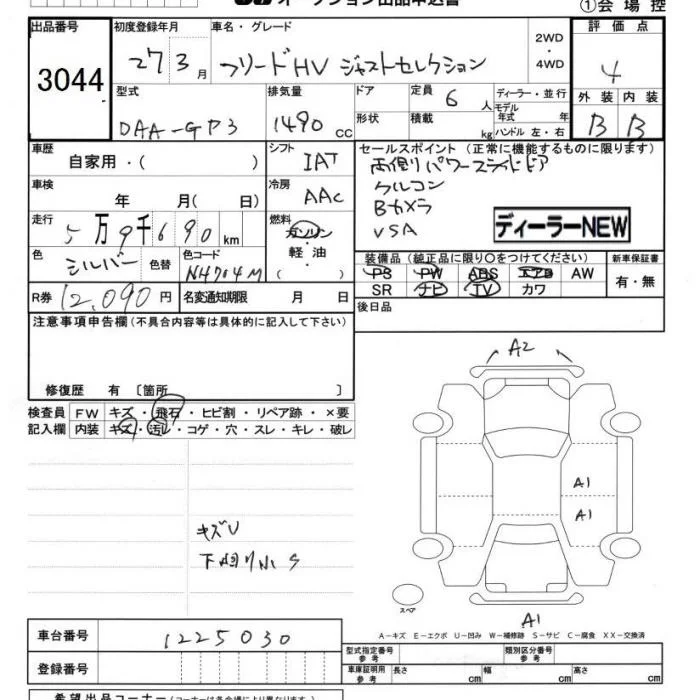 オークション出品申込書
①会場控
出品番号
3044
初度登録年月
27 3月
車名・グレード
フリードHV ジャストセレクション
2WD
・
4WD
評価点
4
外装 内装
B B
型式
DAA-GP3
排気量
1490 CC
ドア
形状
定員 6 人
積載 kg
ディーラー・並行
モデル年式 年
ハンドル 左・右
車歴
自家用・( )
シフト
IAT
セールスポイント (正常に機能するものに限ります)
両側パワースライドドア
クルコン
Bカメラ
VSA
ディーラーNEW
車検
年 月( 日)
冷房
AAC
走行
5万9千690km
燃料
ガソリン
軽・油
( )
色
シルバー
色替
色コード
NH704M
装備品 (純正品に限り○をつけてください)
PS PW ABS エアB AW
SR ナビ TV カワ
新車保証書
有・無
R券 12,090円
名変通知期限 月 日
後日品
注意事項申告欄(不具合内容等は具体的に記入して下さい)
修復歴 有 〔箇所 〕
検査員
記入欄
FW キズ・飛石・ヒビ割・リペア跡・×要
内装 キズ・汚レ・コゲ・穴・スレ・キレ・破レ
A2
A1
A1
キズU
下廻り小S
スペア
A1
A－キズ E－エクボ U－凹み W－補修跡 S－サビ C－腐食 XX－交換済
車台番号
1225030
登録番号
型式指定番号
参考
類別区分番号
参考
車庫証明用
参考
長さ cm
幅 cm
高さ cm
希望出品コーナー(コーナーは各会場により異なります)